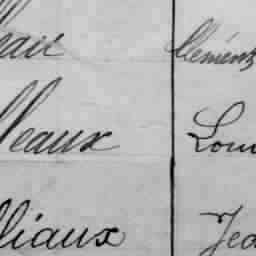 eau Clément
lleaux Loui
lliaux Jea